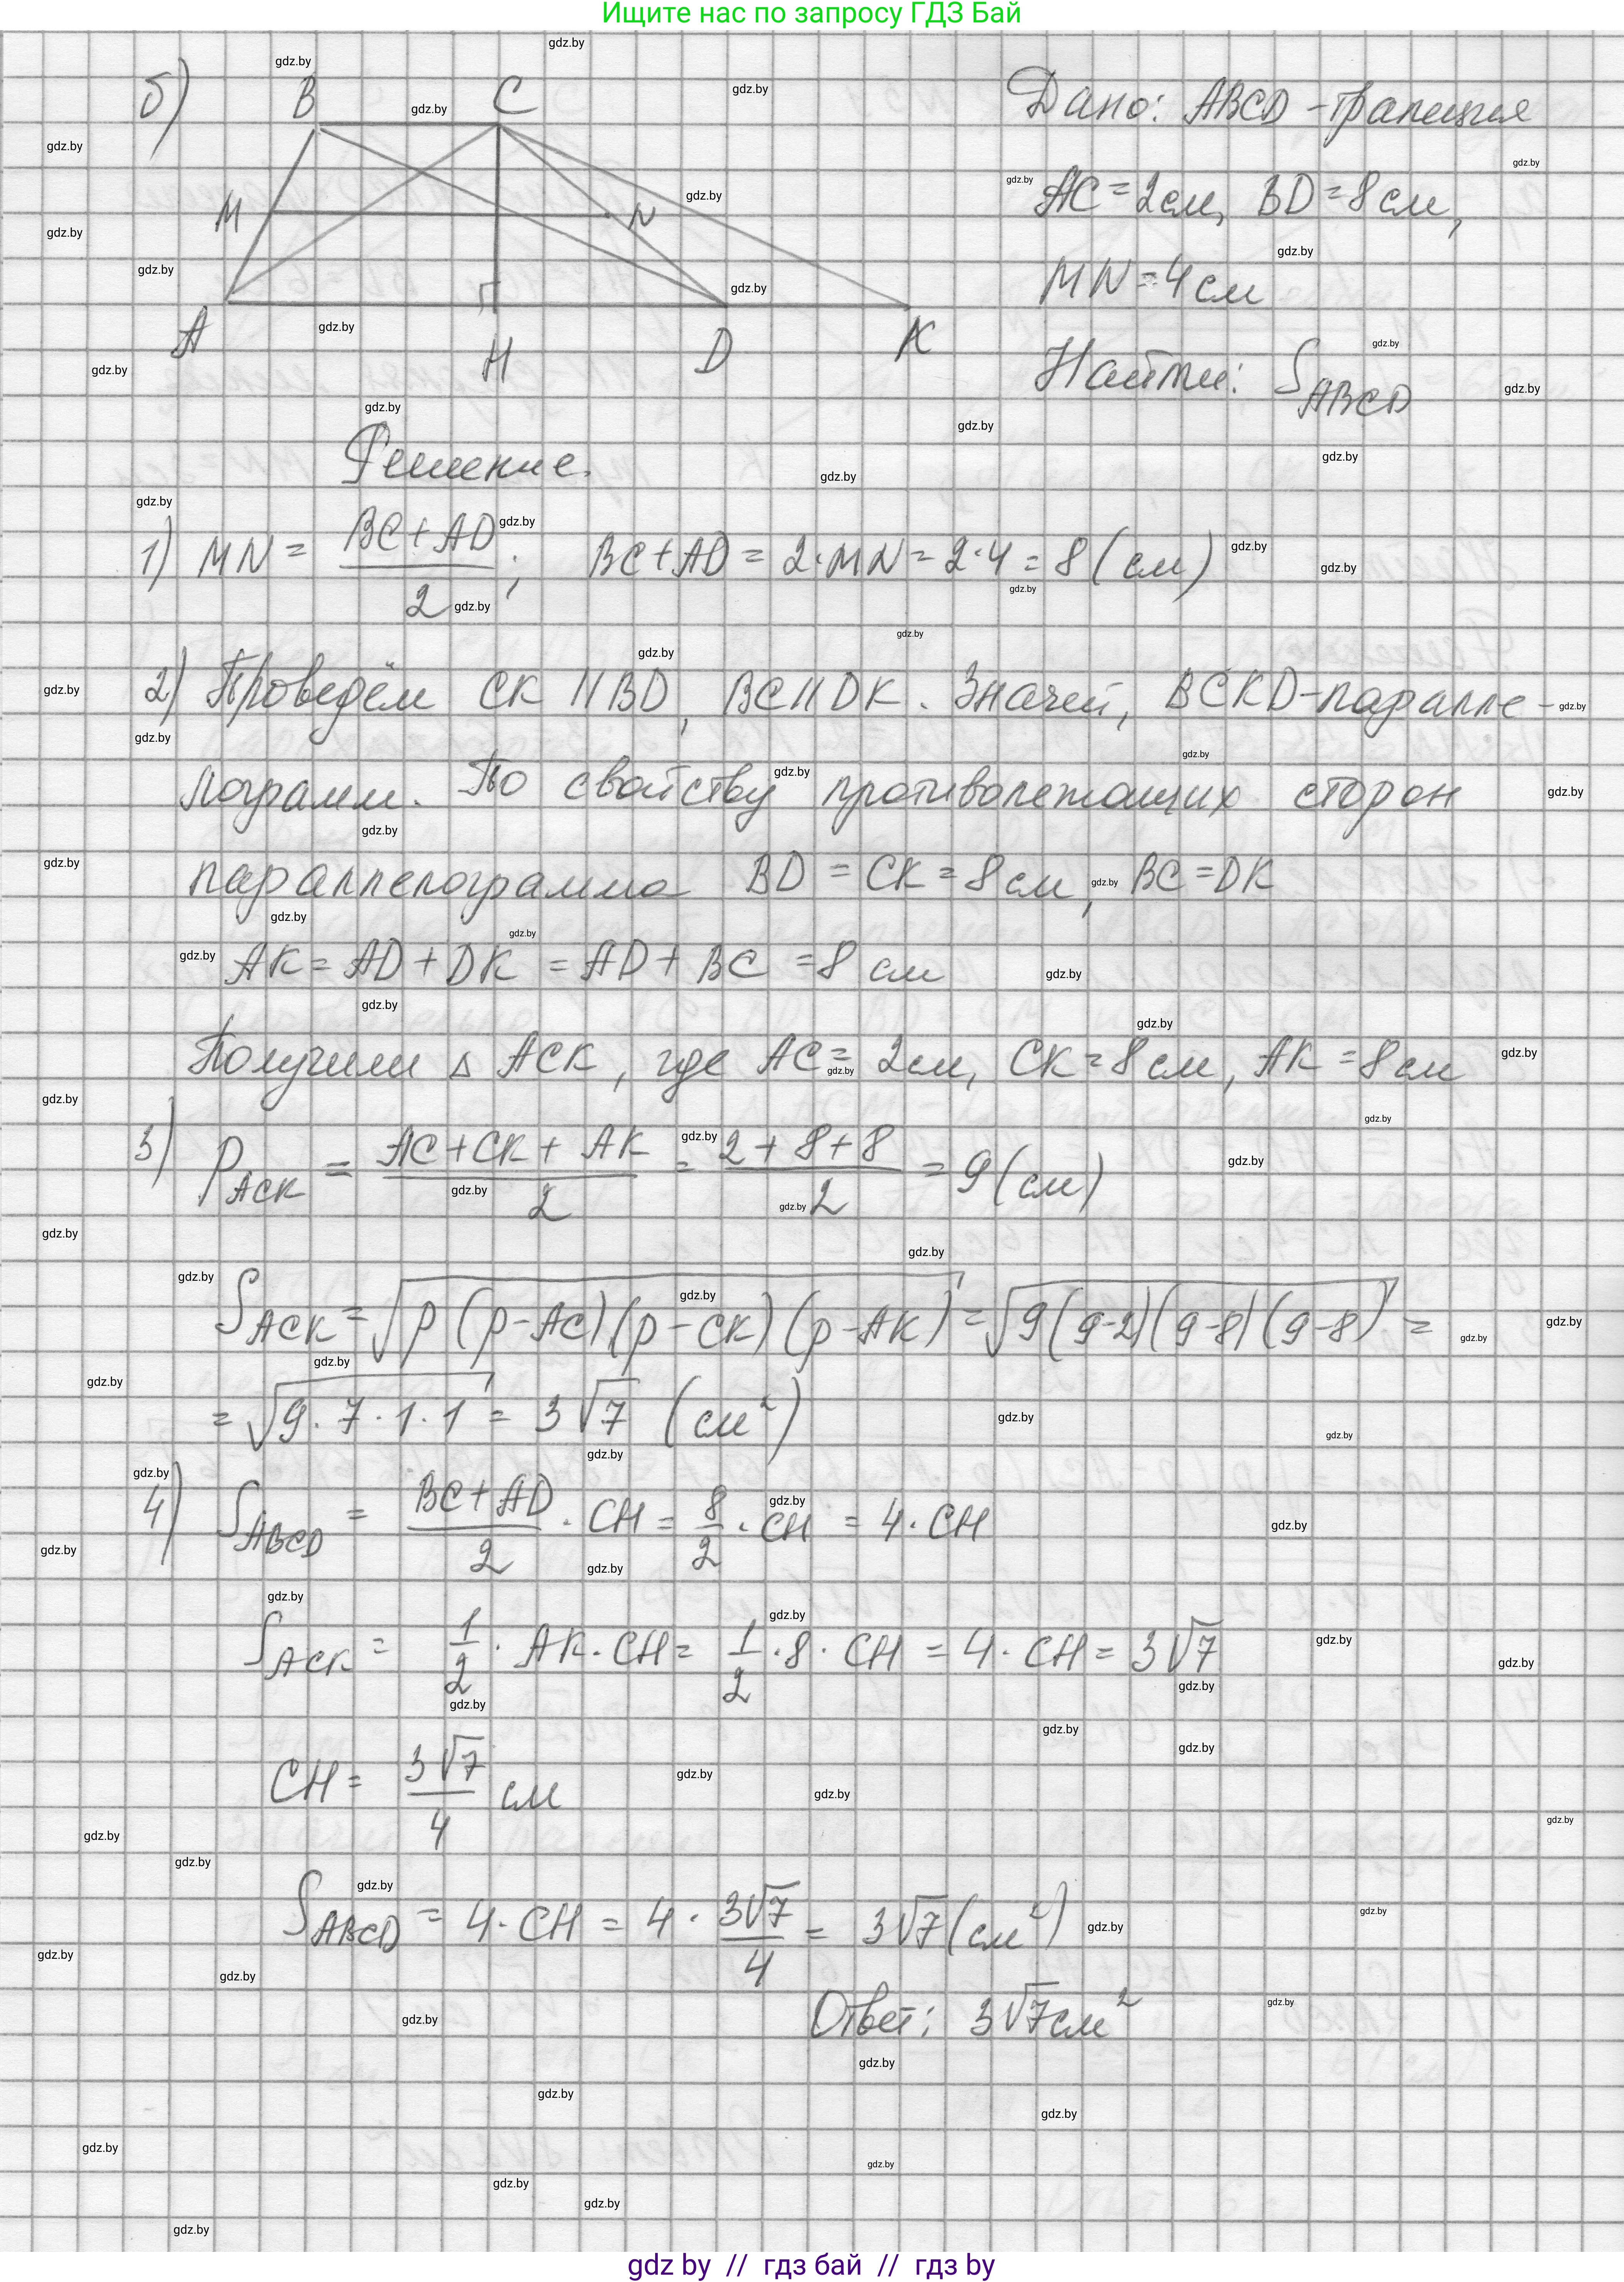 Ищите нас по запросу ГДЗ Бай
б)
B C
M N
A H D K
Дано: ABCD - трапеция
AC = 2 см, BD = 8 см,
MN = 4 см
Найти: S_ABCD
Решение.
1) MN = (BC + AD)/2; BC + AD = 2 · MN = 2 · 4 = 8 (см)
2) Проведём CK || BD, BC || DK. Значит, BCKD - паралле-
лограмм. По свойству противолежащих сторон
параллелограмма BD = CK = 8 см, BC = DK
AK = AD + DK = AD + BC = 8 см
Получили Δ ACK, где AC = 2 см, CK = 8 см, AK = 8 см
3) p_ACK = (AC + CK + AK)/2 = (2 + 8 + 8)/2 = 9 (см)
S_ACK = √(p (p - AC) (p - CK) (p - AK)) = √(9 (9-2) (9-8) (9-8)) =
= √(9 · 7 · 1 · 1) = 3√7 (см²)
4) S_ABCD = (BC + AD)/2 · CH = 8/2 · CH = 4 · CH
S_ACK = 1/2 · AK · CH = 1/2 · 8 · CH = 4 · CH = 3√7
CH = 3√7/4 см
S_ABCD = 4 · CH = 4 · 3√7/4 = 3√7 (см²)
Ответ: 3√7 см²
gdz by // гдз бай // гдз by